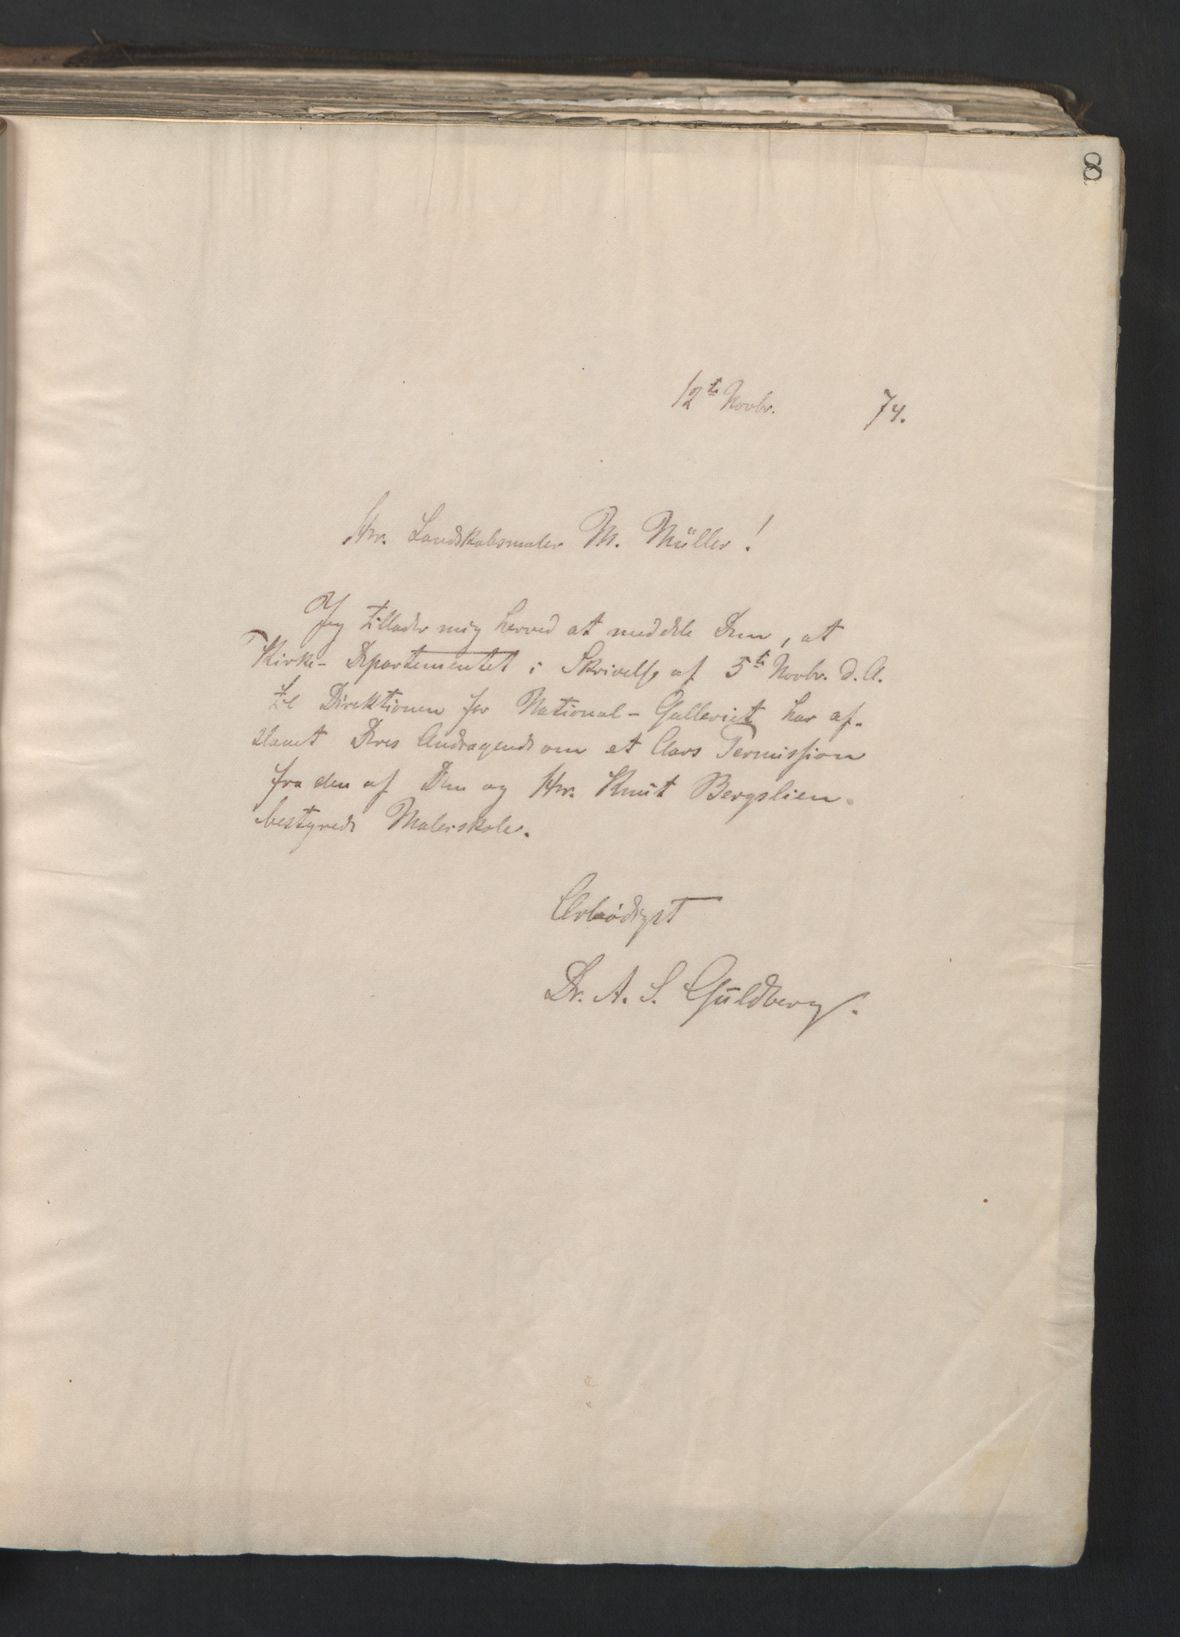 8
12te Novbr. 74.
Hr. Landskabsmaler M. Müller!
Jeg tillader mig herved at meddele Dem, at
Kirke-Departementet i Skrivelse af 5te Novbr. d. A.
til Direktionen for National-Galleriet har af-
slaaet Deres Andragende om et Aars Permission
fra den af Dem og Hr. Knut Bergslien
bestyrede Malerskole.
Ærbødigst
Dr. A. S. Guldberg.